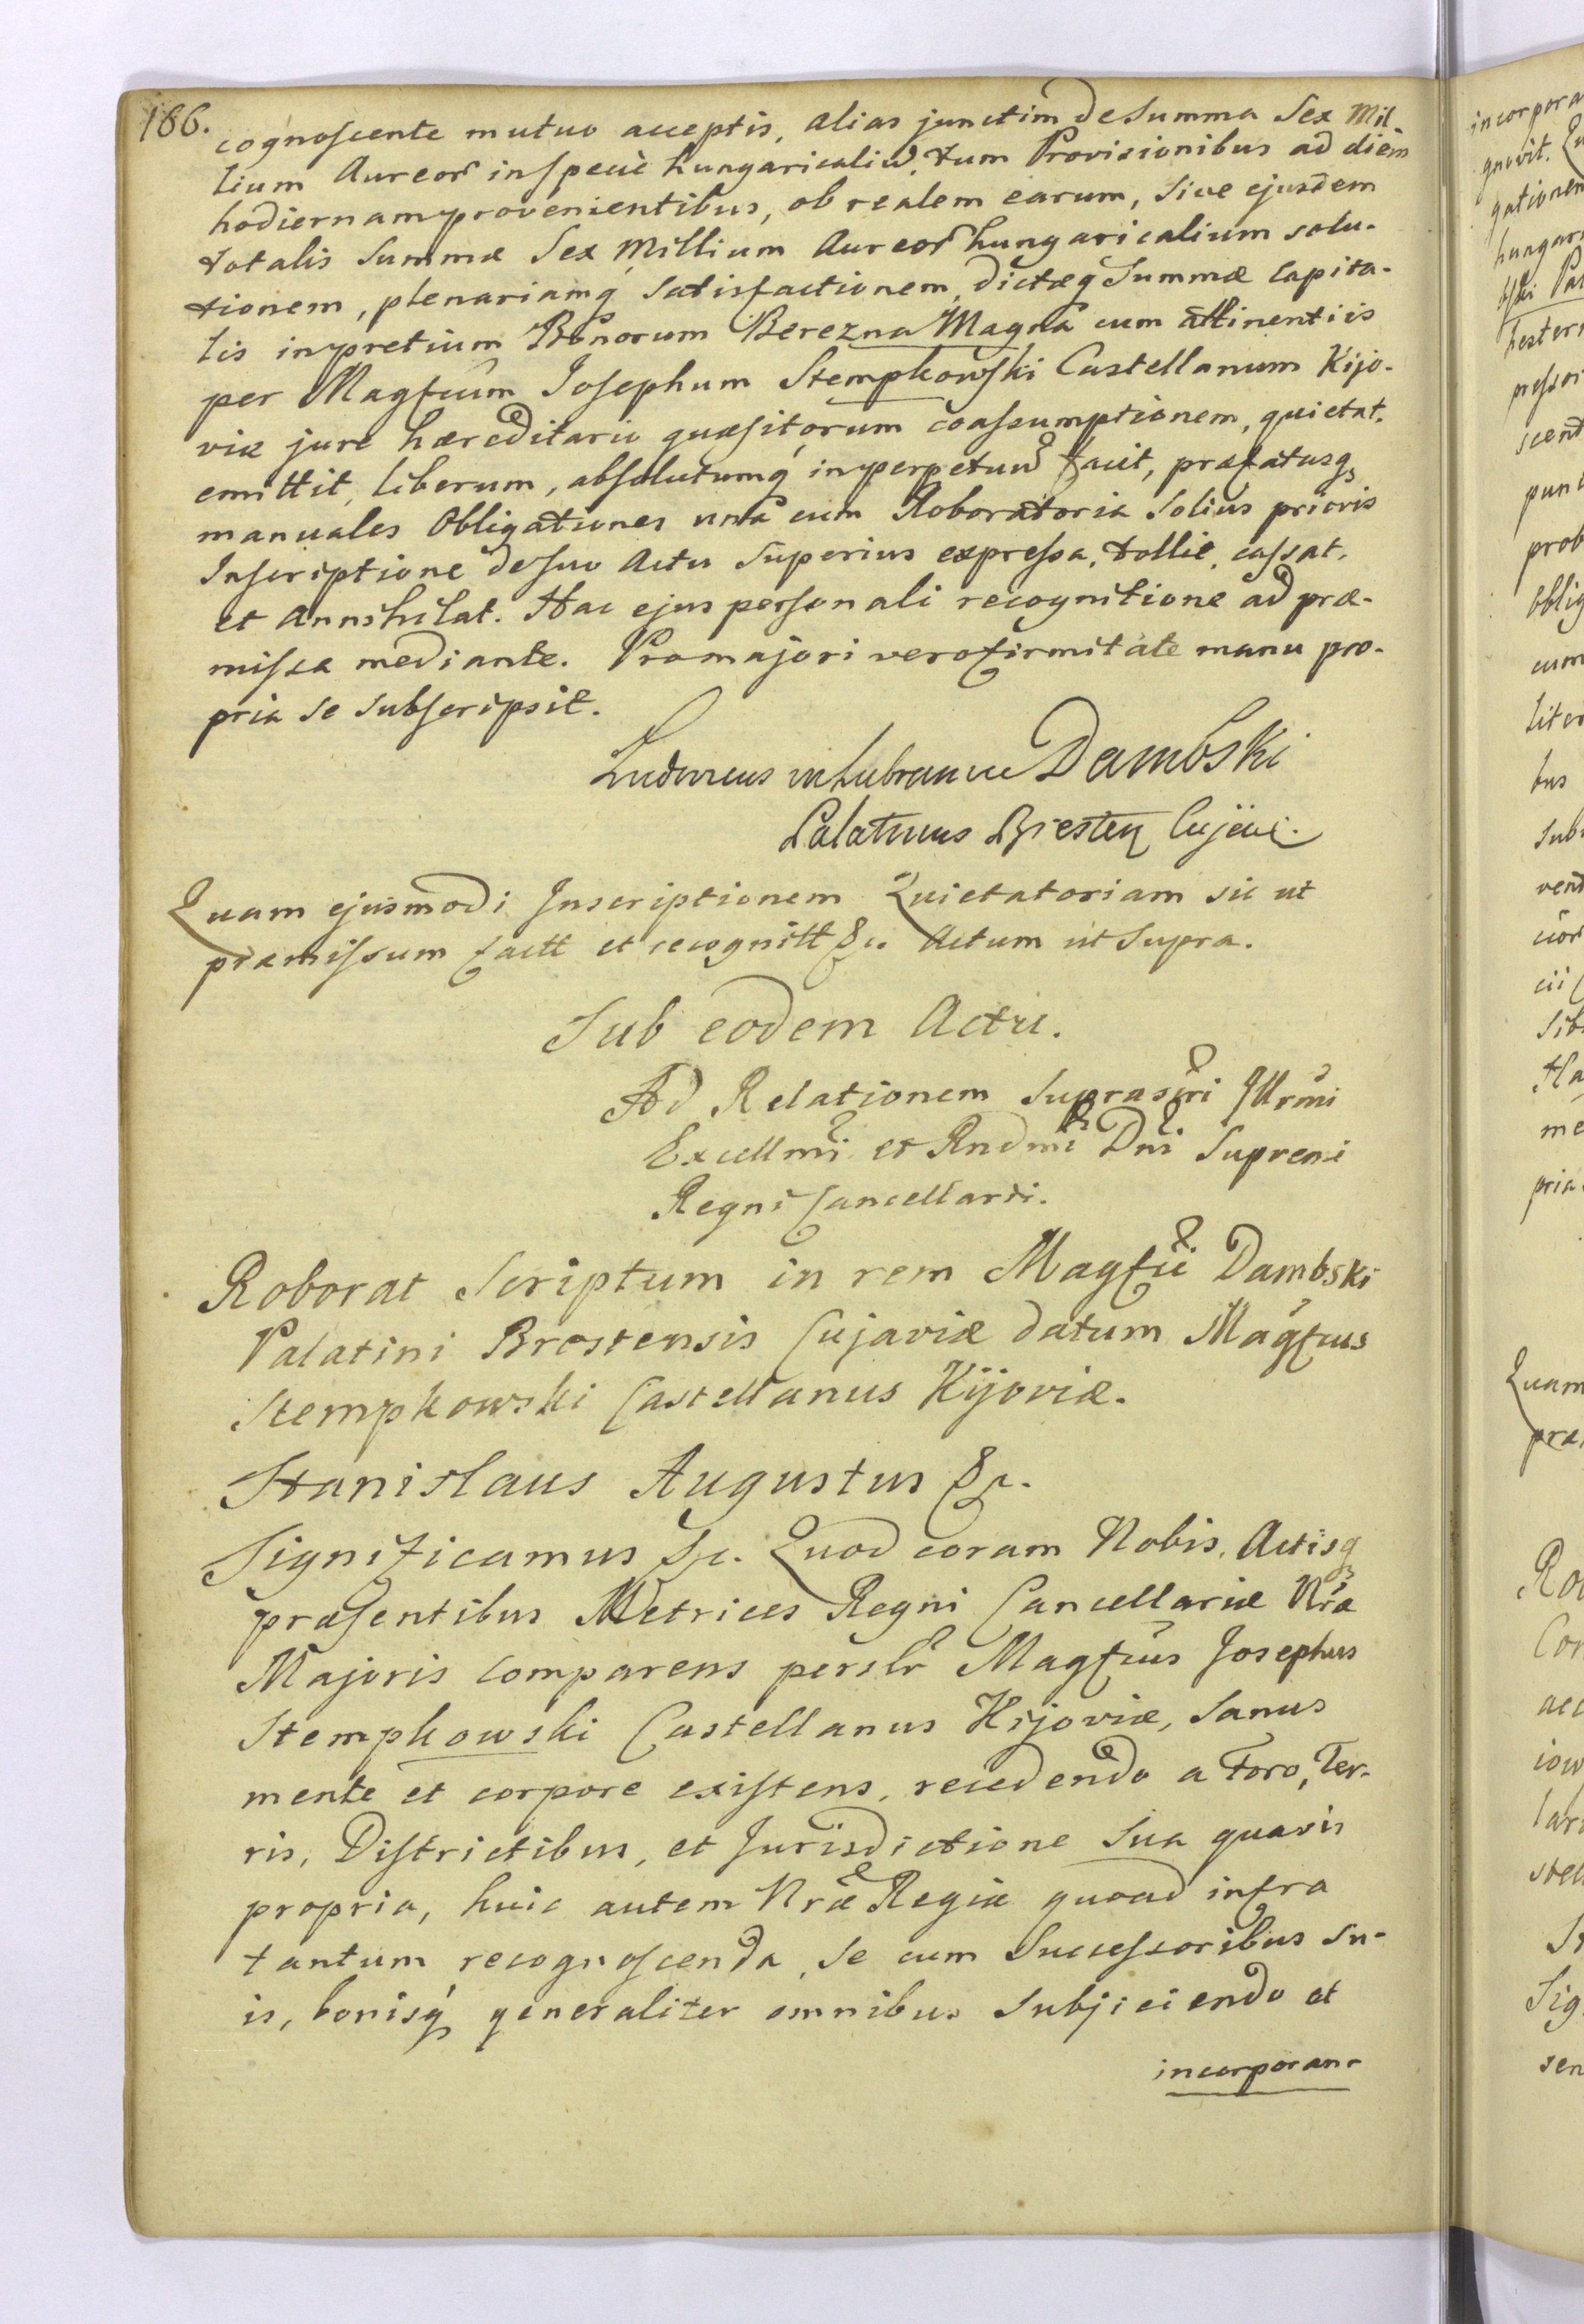 186.
cognoscente mutuo acceptis, alias junctim de Summa Sex Mil-
lium Aureor in specie hungaricaliu, tum Provisionibus ad diem
hodiernam provenientibus, ob realem earum, sive ejusdem
totalis Summæ Sex Millium Aureor hungaricalium solu-
tionem, plenariamq satisfactionem, dictæq Summæ Capita-
lis in pretium Bonorum Berezna Magna cum attinentiis
per Magfcum Josephum Stempkowski Castellanum Kijo-
viæ jure hæreditario quæsitorum coassumptionem, quietat,
emittit, liberum, absolutumq in perpetuu facit, præfatasq
manuales Obligationes una cum Roboratoria Solius prioris
Inscriptione de suo Actu Superius expressa, tollit, cassat,
et Annihilat. Hac ejus personali recognitione ad præ-
missa mediante. Pro majori vero firmitate manu pro-
pria se subscripsit.
Ludovicus in Lubraniec Dambski
Palatinus Bresten Cujavi.
Quam ejusmodi Inscriptionem Quietatoriam sic ut
præmissum factt et recognitt &c. Actum ut Supra.
Sub eodem Actu.
Ad Relationem Suprascri Illrmi
Excellmi et Rndmi Dni Supremi
Regni Cancellarii.
Roborat Scriptum in rem Magfci Dambski
Palatini Brestensis Cujaviæ datum Magfcus
Stempkowski Castellanus Kijoviæ.
Stanislaus Augustus &c.
Significamus &c. Quod coram Nobis, Actisq
præsentibus Metrices Regni Cancellariæ Nræ
Majoris comparens perslr Magfcus Josephus
Stempkowski Castellanus Kijoviæ, Sanus
mente et corpore existens, recedendo a Foro, Ter-
ris, Districtibus, et Jurisdictione Sua quavis
propria, huic autem Nræ Regiæ quoad infra
tantum recognoscenda, Se cum Successoribus su-
is, bonisq generaliter omnibus Subjiciendo et
incorporan-